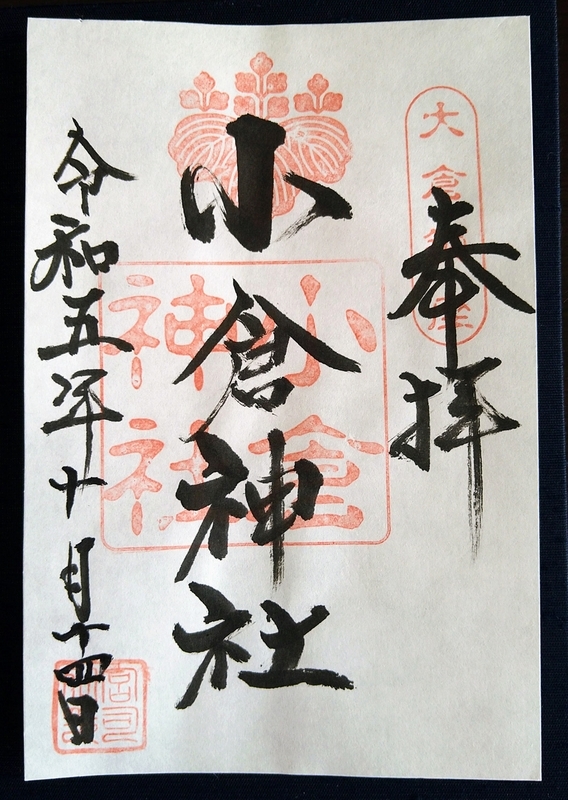 奉拝
小倉神社
令和五年十月十四日
小倉
神社